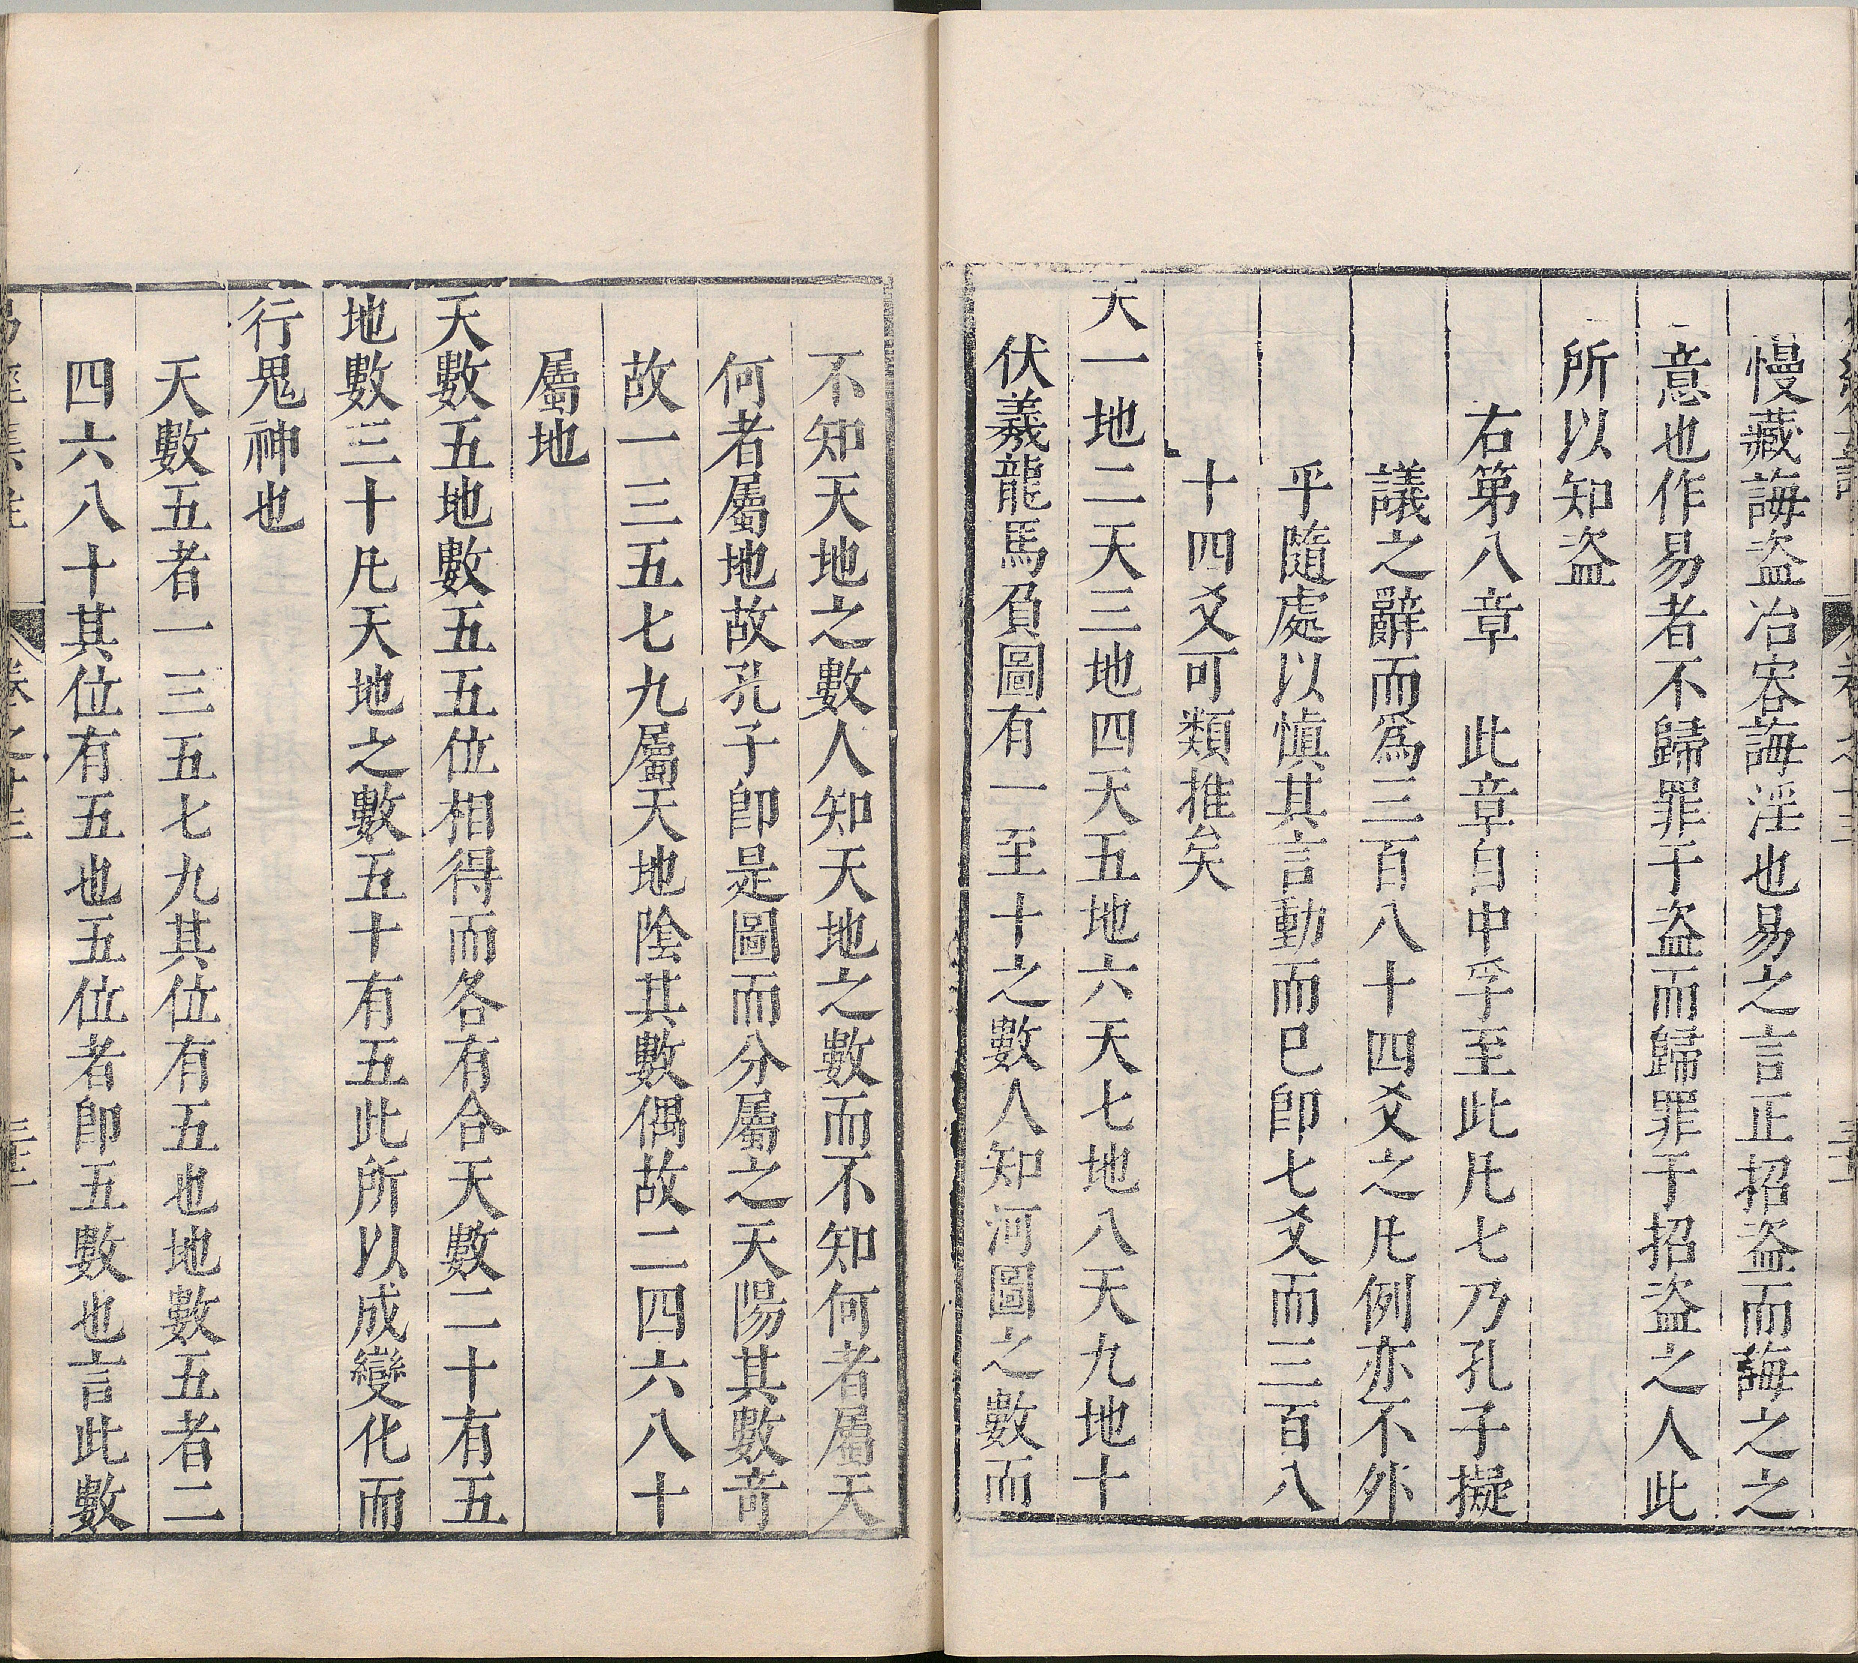 慢藏誨盜冶容誨淫也易之言正招盜而誨之之
意也作易者不歸罪于盜而歸罪于招盜之人此
所以知盜
右第八章　此章自中孚至此凡七乃孔子擬
議之辭而爲三百八十四爻之凡例亦不外
乎隨處以慎其言動而已卽七爻而三百八
十四爻可類推矣
天一地二天三地四天五地六天七地八天九地十
伏羲龍馬負圖有一至十之數人知河圖之數而
不知天地之數人知天地之數而不知何者屬天
何者屬地故孔子卽是圖而分屬之天陽其數奇
故一三五七九屬天地陰其數偶故二四六八十
屬地
天數五地數五五位相得而各有合天數二十有五
地數三十凡天地之數五十有五此所以成變化而
行鬼神也
天數五者一三五七九其位有五也地數五者二
四六八十其位有五也五位者卽五數也言此數